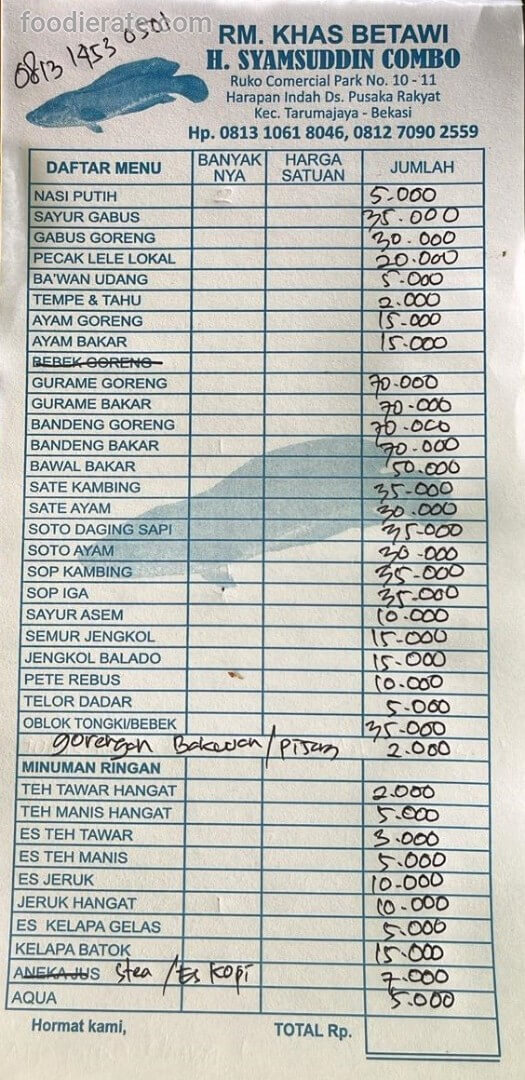 foodierate.com
0813 1453 0501
RM. KHAS BETAWI
H. SYAMSUDDIN COMBO
Ruko Comercial Park No. 10 - 11
Harapan Indah Ds. Pusaka Rakyat
Kec. Tarumajaya - Bekasi
Hp. 0813 1061 8046, 0812 7090 2559
DAFTAR MENU BANYAK NYA HARGA SATUAN JUMLAH
NASI PUTIH 5.000
SAYUR GABUS 35.000
GABUS GORENG 30.000
PECAK LELE LOKAL 20.000
BA'WAN UDANG 5.000
TEMPE & TAHU 2.000
AYAM GORENG 15.000
AYAM BAKAR 15.000
BEBEK GORENG
GURAME GORENG 70.000
GURAME BAKAR 70.000
BANDENG GORENG 70.000
BANDENG BAKAR 70.000
BAWAL BAKAR 50.000
SATE KAMBING 35.000
SATE AYAM 30.000
SOTO DAGING SAPI 35.000
SOTO AYAM 30.000
SOP KAMBING 35.000
SOP IGA 35.000
SAYUR ASEM 10.000
SEMUR JENGKOL 15.000
JENGKOL BALADO 15.000
PETE REBUS 10.000
TELOR DADAR 5.000
OBLOK TONGKI/BEBEK 35.000
gorengan Bakwan/ 2.000
MINUMAN RINGAN
TEH TAWAR HANGAT 2.000
TEH MANIS HANGAT 5.000
ES TEH TAWAR 3.000
ES TEH MANIS 5.000
ES JERUK 10.000
JERUK HANGAT 10.000
ES KELAPA GELAS 5.000
KELAPA BATOK 15.000
ANEKA JUS /Es Kopi 7.000
AQUA 5.000
Hormat kami, TOTAL Rp.